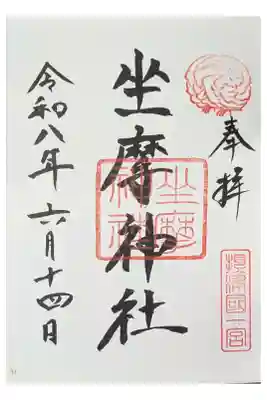 奉拝
摂津國一宮
坐摩神社
坐摩神社
令和八年六月十四日